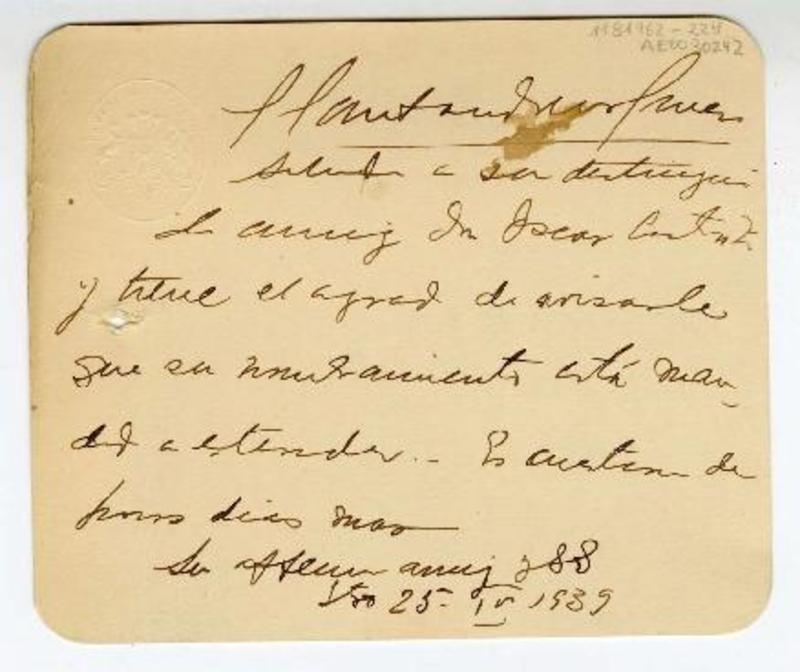 1181962-224
AE0020242
saluda a su distingui
do amigo Dn Oscar
y tiene el agrado de avisarle
que su nombramiento está man_
dado a extender.. Es cuestion de
pocos dias mas
Su affmo amigo y SS
Stgo 25-IV 1939